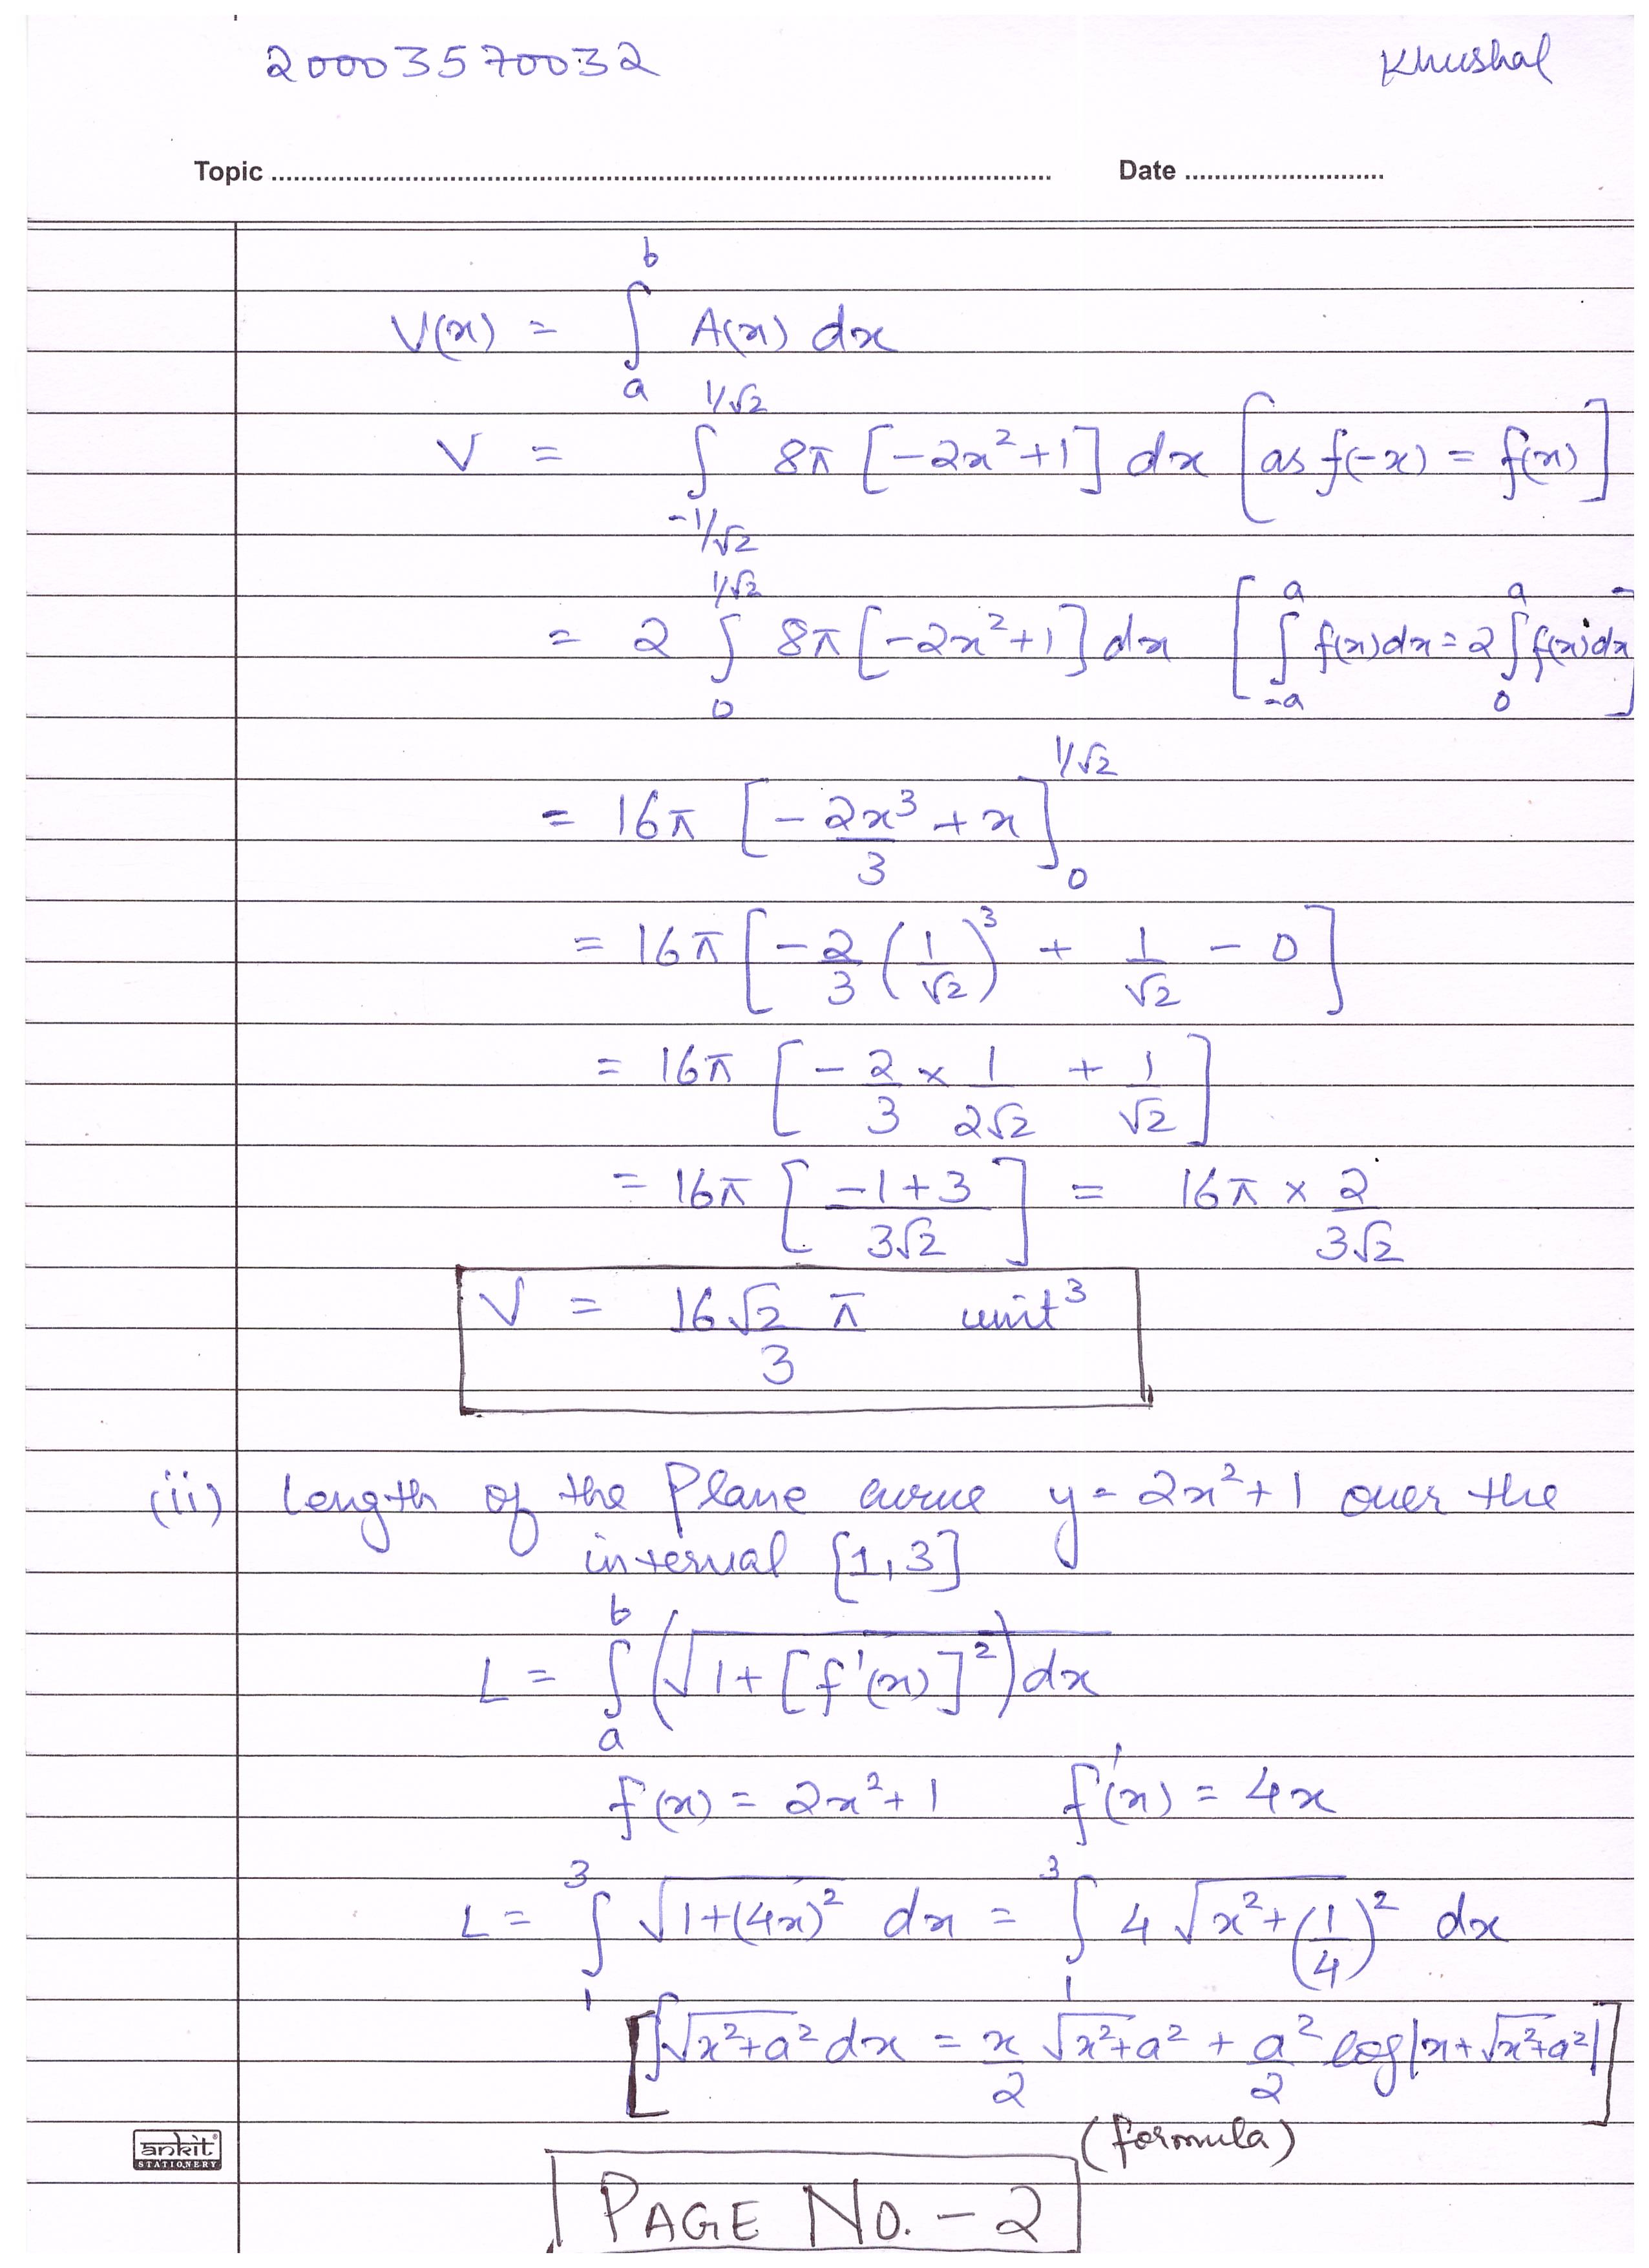 20003570032 Khushal
Topic ........................................ Date ..........................
V(x) = ∫_a^b A(x) dx
V = ∫_{-1/√2}^{1/√2} 8π [-2x²+1] dx [as f(-x) = f(x)]
= 2 ∫_0^{1/√2} 8π [-2x²+1] dx [∫_{-a}^a f(x)dx = 2∫_0^a f(x)dx]
= 16π [-2x³/3 + x]_0^{1/√2}
= 16π [-2/3 (1/√2)³ + 1/√2 - 0]
= 16π [-2/3 × 1/2√2 + 1/√2]
= 16π [(-1+3)/3√2] = 16π × 2/3√2
V = 16√2 π/3 unit³
(ii) Length of the Plane curve y = 2x²+1 over the
interval [1,3]
L = ∫_a^b (√(1+[f'(x)]²)) dx
f(x) = 2x²+1 f'(x) = 4x
L = ∫_1^3 √(1+(4x)²) dx = ∫_1^3 4√(x²+(1/4)²) dx
[∫√(x²+a²) dx = x/2 √(x²+a²) + a²/2 log|x+√(x²+a²)|]
(formula)
ankit
STATIONERY
PAGE NO. - 2